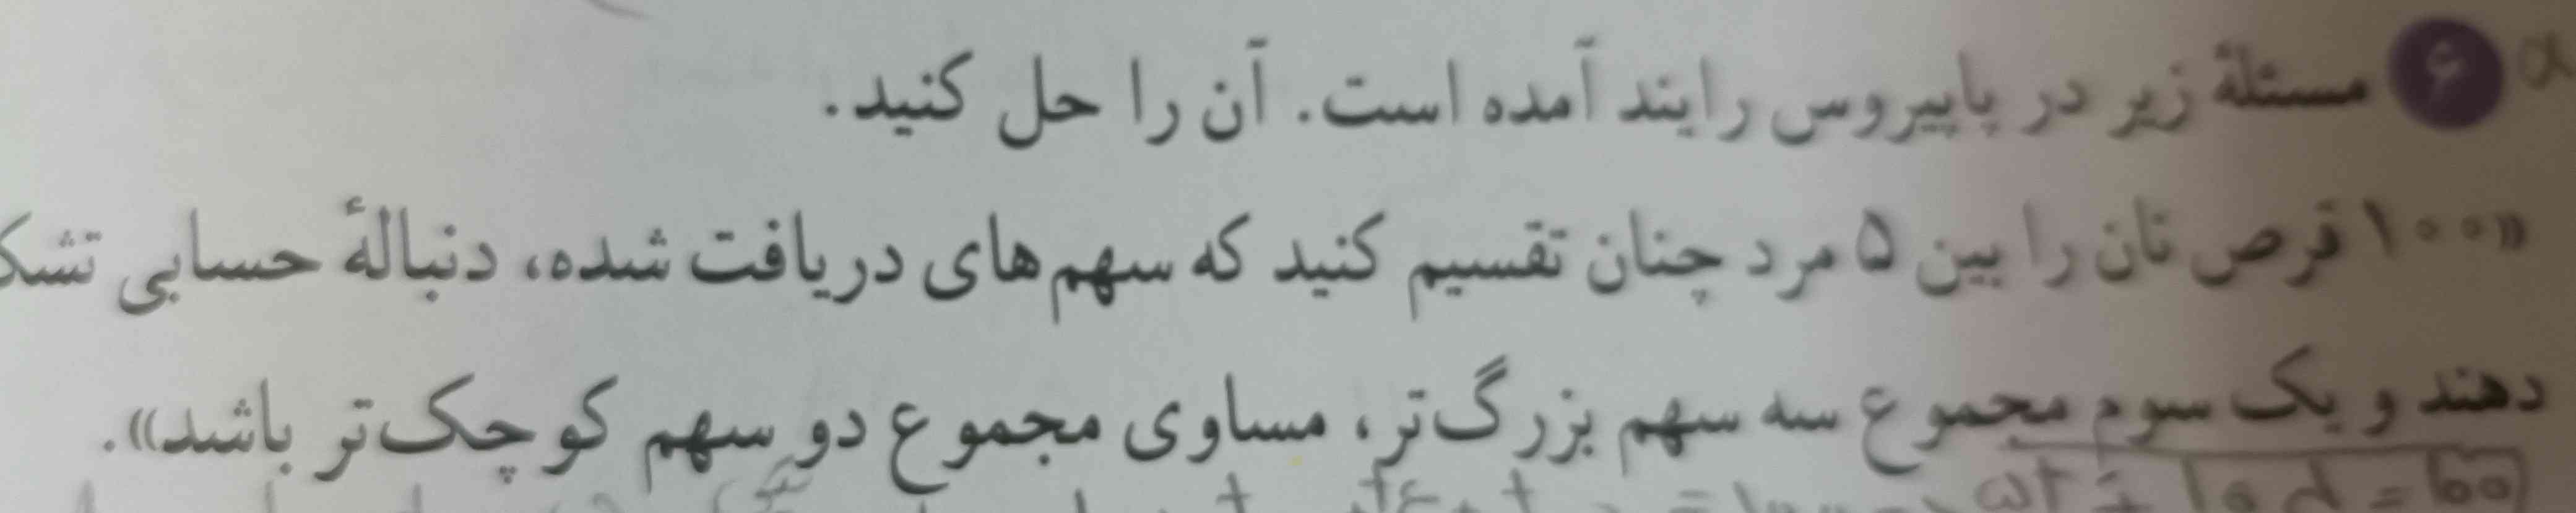 ۶ مسئلهٔ زیر در پاپیروس رایند آمده است. آن را حل کنید.
«۱۰۰ قرص نان را بین ۵ مرد چنان تقسیم کنید که سهم‌های دریافت شده، دنبالهٔ حسابی تشک
دهند و یک سوم مجموع سه سهم بزرگ‌تر، مساوی مجموع دو سهم کوچک‌تر باشد».